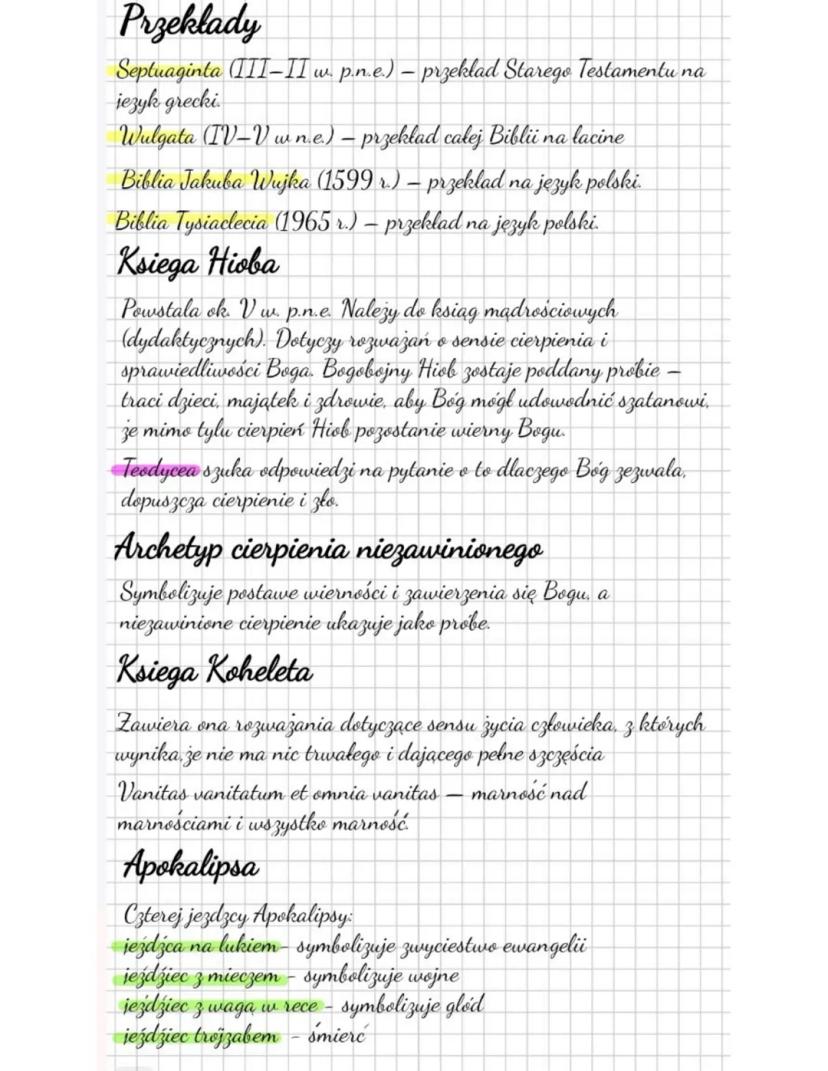 Przekłady
Septuaginta (III–II w. p.n.e.) – przekład Starego Testamentu na
jezyk grecki.
Wulgata (IV–V w n.e.) – przekład całej Biblii na łacine
Biblia Jakuba Wujka (1599 r.) – przekład na język polski.
Biblia Tysiaclecia (1965 r.) – przekład na język polski.
Ksiega Hioba
Powstala ok. V w. p.n.e. Należy do ksiąg mądrościowych
(dydaktycznych). Dotyczy rozważań o sensie cierpienia i
sprawiedliwości Boga. Bogobojny Hiob zostaje poddany próbie –
traci dzieci, majątek i zdrowie, aby Bóg mógł udowodnić szatanowi,
że mimo tylu cierpień Hiob pozostanie wierny Bogu.
Teodycea szuka odpowiedzi na pytanie o to dlaczego Bóg zezwala,
dopuszcza cierpienie i zło.
Archetyp cierpienia niezawinionego
Symbolizuje postawe wierności i zawierzenia się Bogu, a
niezawinione cierpienie ukazuje jako próbe.
Ksiega Koheleta
Zawiera ona rozważania dotyczące sensu życia człowieka, z których
wynika,że nie ma nic trwałego i dającego pełne szczęścia
Vanitas vanitatum et omnia vanitas – marność nad
marnościami i wszystko marność.
Apokalipsa
Czterej jezdzcy Apokalipsy:
jeźdźca na lukiem- symbolizuje zwyciestwo ewangelii
jeździec z mieczem - symbolizuje wojne
jeździec z waga w rece - symbolizuje glód
jeździec trójzabem - śmierć